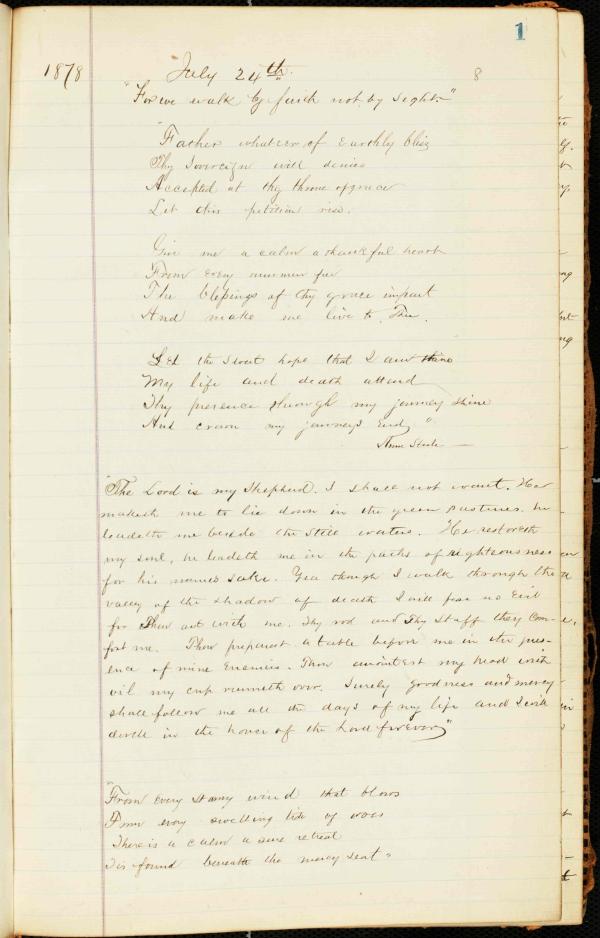 1
1878 July 24th 8
"For we walk by faith not by sight."
"Father whatever of Earthly bliss
Thy Sovereign will denies
Accepted at thy throne of grace
Let this petition rise.
Give me a calm a thankful heart
From every murmur free
The blessings of thy grace impart
And make me live to Thee.
Let the sweet hope that I am thine
My life and death attend
Thy presence through my journey shine
And crown my journeys End"
Anne Steele
"The Lord is my Shepherd. I shall not want. He
maketh me to lie down in the green pastures. he
leadeth me beside the still waters. He restoreth
my soul, he leadeth me in the paths of righteousness
for his names sake. Yea though I walk through the
valley of the shadow of death I will fear no Evil
for Thou art with me. Thy rod and Thy Staff they Com-
fort me. Thou preparest a table before me in the pres-
ence of mine Enemies. Thou anointest my head with
oil my cup runneth over. Surely goodness and mercy
shall follow me all the days of my life and I will
dwell in the house of the Lord forever"
"From every stormy wind that blows
From every swelling tide of woes
There is a calm a sure retreat
Tis found beneath the mercy seat"